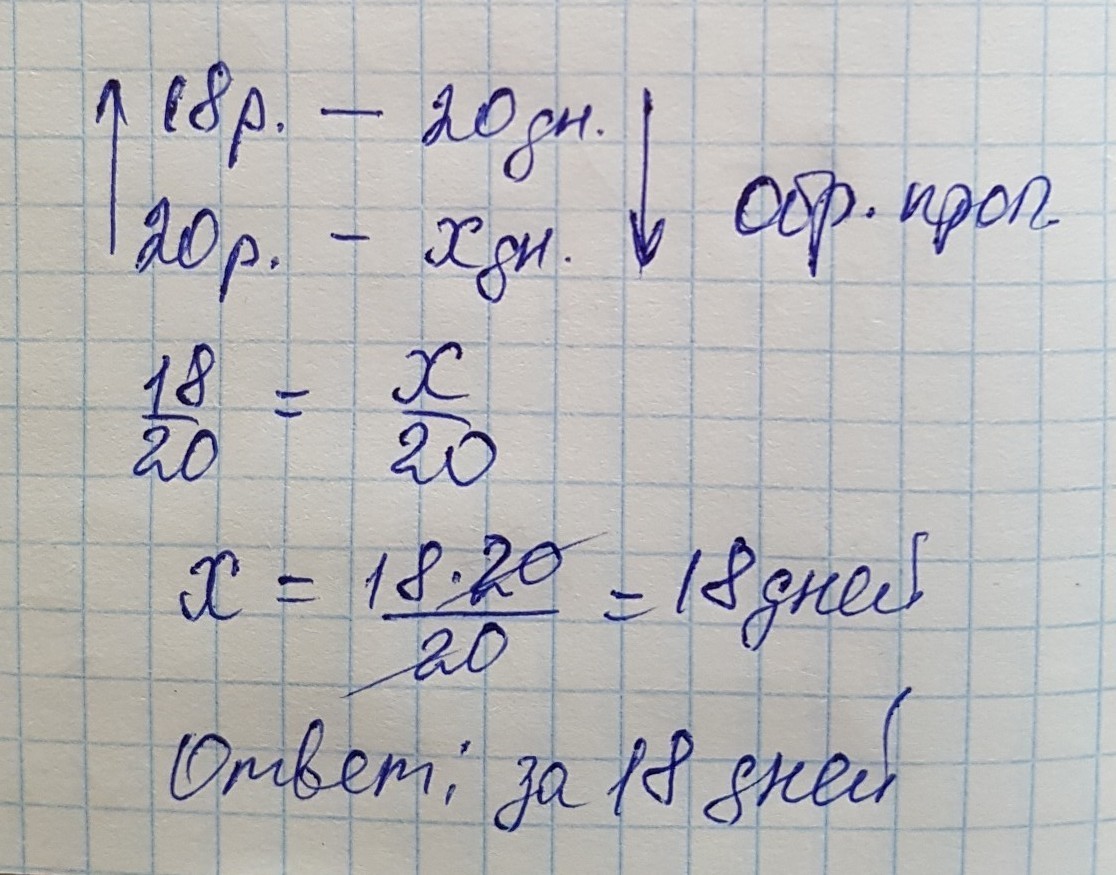 18р. — 20дн.
20р. - xдн.
Обр. проп.
18/20 = x/20
x = 18·20/20 = 18дней
Ответ: за 18 дней